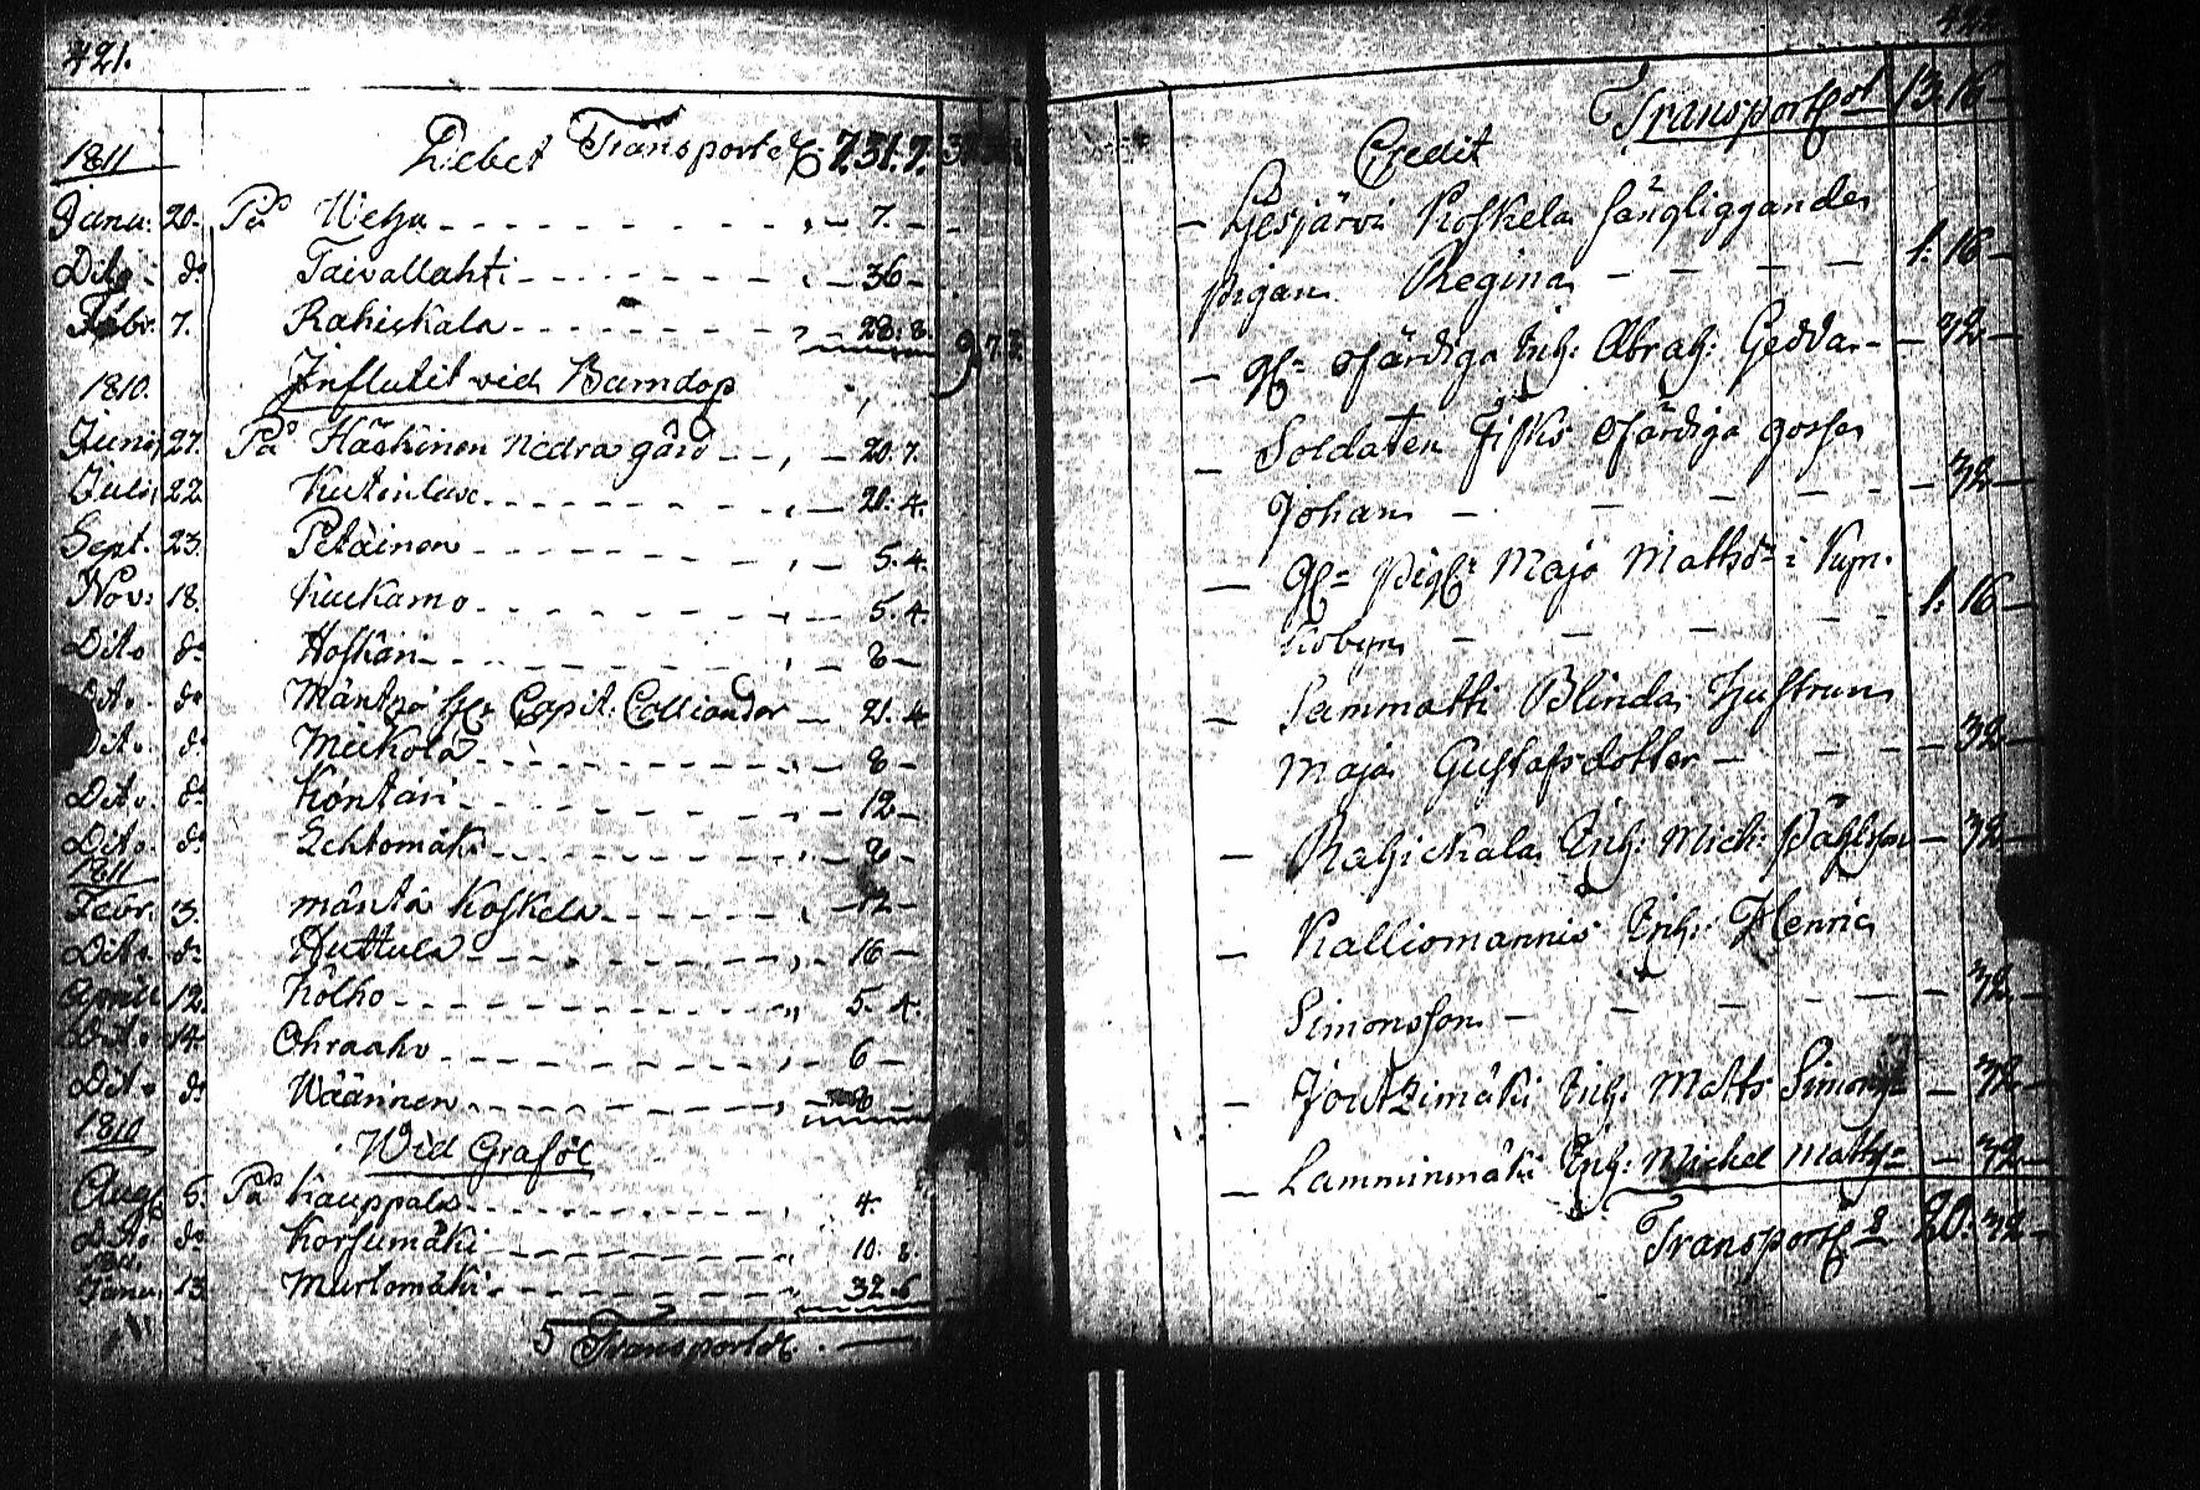 421.
1811 Debet Transporteras 7.31.7.
Janu: 20. På Wehu - 7. -
Dito do Taivallahti - 36 -
Febr. 7. Rahickala - 28: 8.
1810. Influtit vid Barndop
Junij 27. På Häskinen Nedra gård - 20. 7.
Julij 22 - 21. 4.
Sept. 23. Petäinen - 5. 4.
Nov: 18. Kuckamo - 5. 4.
Dito do - 8 -
Dito do Capit: Colliander - 21. 4
Dito do Mickola - 8 -
Dito do Kontari - 12 -
Dito do Lehtomäki - 8 -
1811
Febr. 3. Mäntä Koskela - 12 -
Dito do Huttula - 16 -
Aprill 12. Kolho - 5. 4.
Dito 14 Ohraaho - 6 -
Dito do Wäärinen - 8 -
1810 Wid Graföl
Aug 5. På Kauppala 4.
Dito do Korsumäki 10. 8.
1811.
Janu. 13 Murtomäki 32. 6
Transporteras
Transport 13. 16 -
Credit
- Koskela sängliggande
pigan Regina - 1: 16 -
- ofärdiga Inh: Abrah: Gedda - 32 -
- Soldaten Fisks ofärdiga gosse
Johan - 32 -
- Maja Mattsdr i Kyrc-
kobyn - 1: 16 -
- Sammatti Blinda Hustrun
Maja Gustafsdotter - 32 -
- Rahickala Inh: Mich: Påhlson - 32 -
- Kalliomannis Inh: Henric
Simonsson - 32 -
- Joutzimäki Inh: Matts Simons - 32 -
- Lamminmäki Inh: Michel Matts - 32 -
Transport 20. 32 -